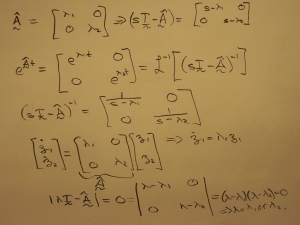 Â = [λ₁ 0; 0 λ₂] ⇒ (sI - Â) = [s-λ₁ 0; 0 s-λ₂]
e^{Ât} = [e^{λ₁t} 0; 0 e^{λ₂t}] = ℒ⁻¹[(sI - Â)⁻¹]
(sI - Â)⁻¹ = [1/(s-λ₁) 0; 0 1/(s-λ₂)]
[ż₁; ż₂] = [λ₁ 0; 0 λ₂] [z₁; z₂] ⇒ ż₁ = λ₁z₁
Â
|λI - Â| = 0 = |λ-λ₁ 0; 0 λ-λ₂| = (λ-λ₁)(λ-λ₂) = 0
⇒ λ = λ₁ or λ₂.